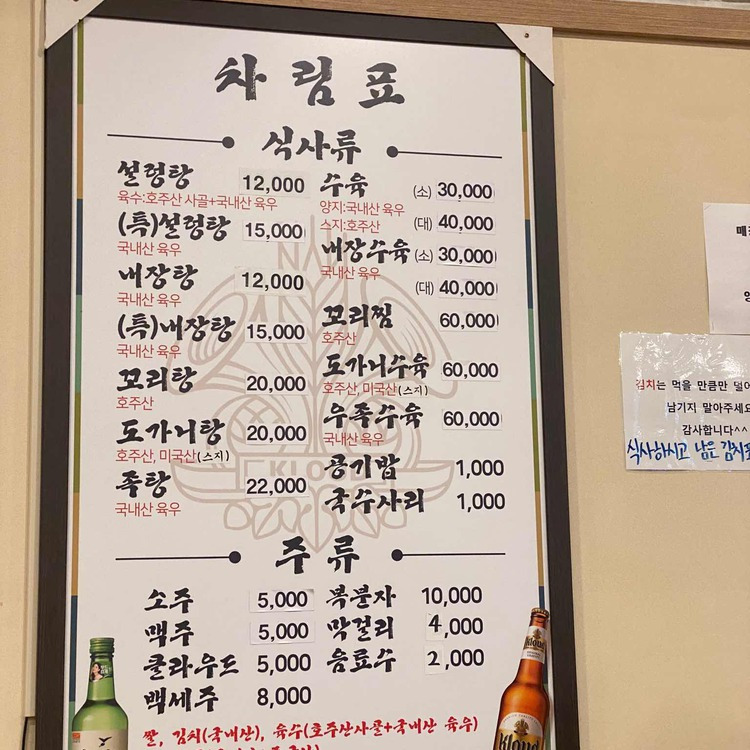 차림표
식사류
설렁탕 12,000
육수:호주산 사골+국내산 육우
(특)설렁탕 15,000
국내산 육우
내장탕 12,000
국내산 육우
(특)내장탕 15,000
국내산 육우
꼬리탕 20,000
호주산
도가니탕 20,000
호주산, 미국산(스지)
족탕 22,000
국내산 육우
수육 (소) 30,000
양지:국내산 육우
스지:호주산 (대) 40,000
내장수육 (소) 30,000
국내산 육우
(대) 40,000
꼬리찜 60,000
호주산
도가니수육 60,000
호주산, 미국산(스지)
우족수육 60,000
국내산 육우
공기밥 1,000
국수사리 1,000
주류
소주 5,000
맥주 5,000
클라우드 5,000
백세주 8,000
복분자 10,000
막걸리 4,000
음료수 2,000
쌀, 김치(국내산), 육수(호주산사골+국내산 육우)
Kloud
Kloud
김치는 먹을 만큼만 덜어
남기지 말아주세요
감사합니다^^
식사하시고 남은 김치